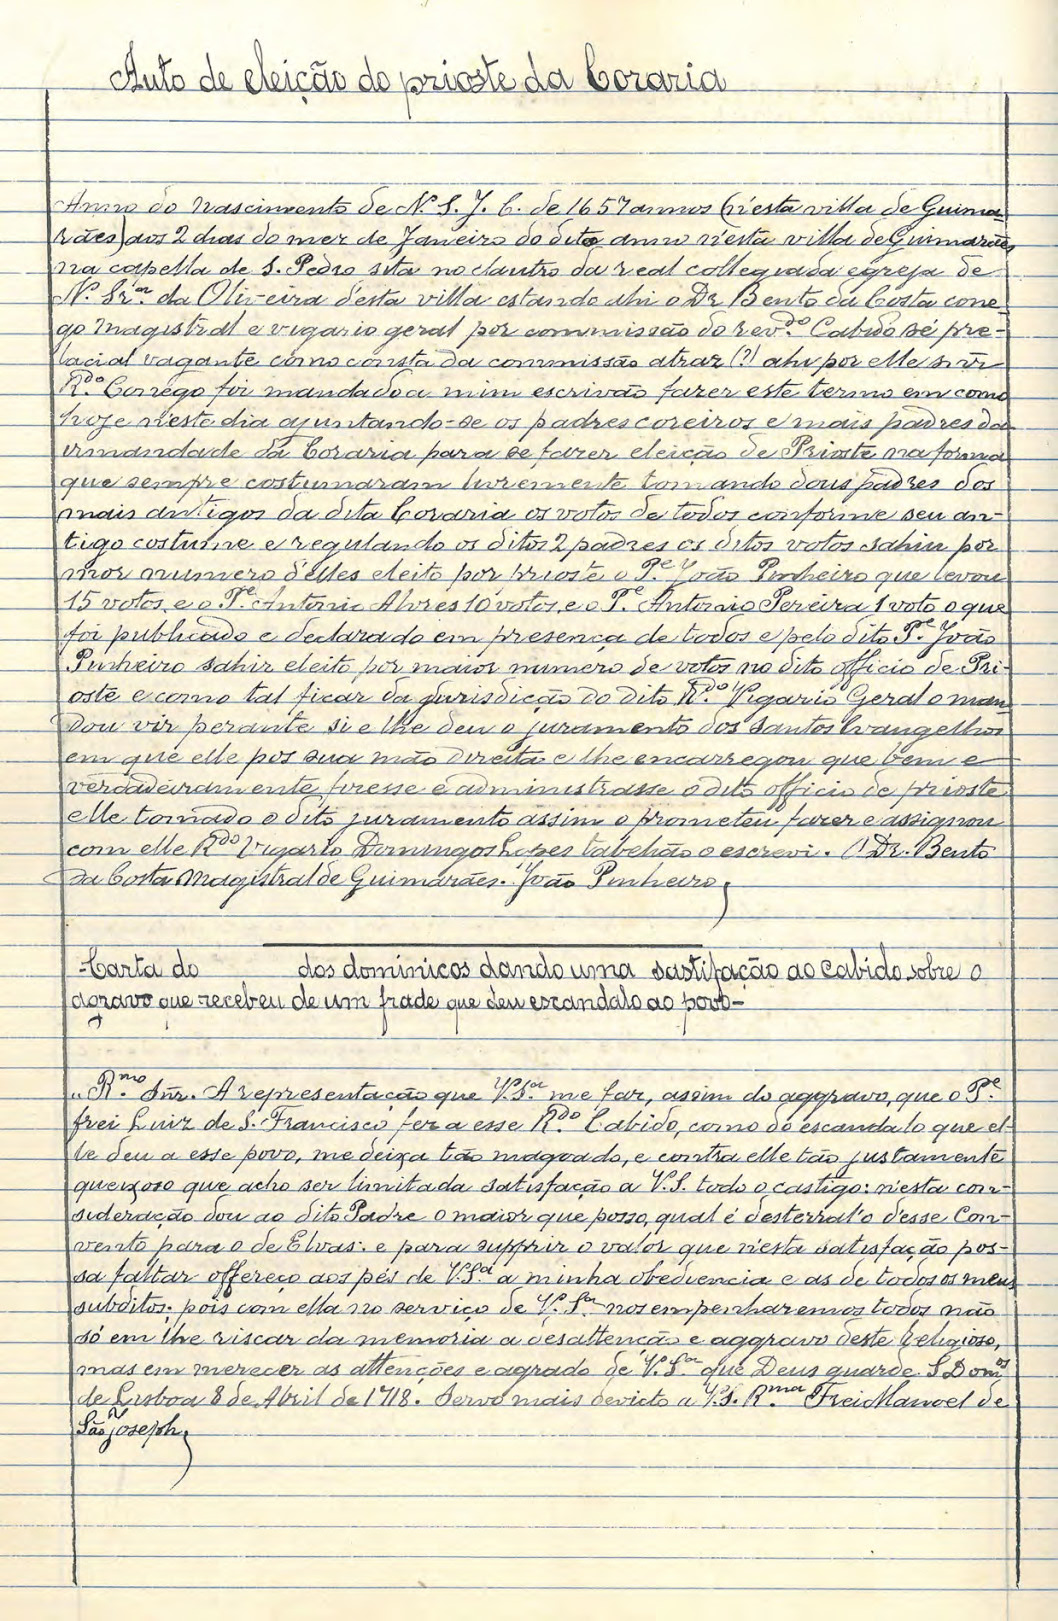 Auto de eleição do prioste da Coraria
Anno do Nascimento de N. S. J. C. de 1657 annos (n'esta villa de Guima-
rães) aos 2 dias do mez de Janeiro do dito anno n'esta villa de Guimarães
na capella de S. Pedro sita no claustro da real collegiada egreja de
N. Srª. da Oliveira d'esta villa estando ahi o Dr Bento da Costa cone-
go magistral e vigario geral por commissão do revdo. Cabido sé pre-
lacial vagante como consta da commissão atraz (?) ahi por elle snr
Rdo. Conego foi mandado a mim escrivão fazer este termo em como
hoje n'este dia ajuntando-se os padres coreiros e mais padres da
irmandade da Coraria para se fazer eleição de Prioste na forma
que sempre costumaram livremente tomando dous padres dos
mais antigos da dita Coraria os votos de todos conforme seu an-
tigo costume e regulando os ditos 2 padres os ditos votos sahiu por
mor numero d'elles eleito por prioste o Pe. João Pinheiro que levou
15 votos, e o Pe. Antonio Alvres 10 votos, e o Pe. Antonio Pereira 1 voto o que
foi publicado e declarado em presença de todos e pelo dito Pe. João
Pinheiro sahir eleito por maior numero de votos no dito officio de Pri-
oste e como tal ficar da jurisdicção do dito Rdo. Vigario Geral o man-
dou vir perante si e lhe deu o juramento dos Santos Evangelhos
em que elle pos sua mão direita e lhe encarregou que bem e
verdadeiramente fizesse e administrasse o dito officio de prioste
elle tomado o dito juramento assim o prometeu fazer e assignou
com elle Rdo Vigario Domingos Lopes tabelião o escrevi. O Dr. Bento
da Costa Magistral de Guimarães. João Pinheiro.
Carta do dos dominicos dando uma sastifação ao Cabido sobre o
agravo que recebeu de um frade que deu escandalo ao povo-
"Rmo. Snr. A representação que V. Sª me faz, assim do aggravo, que o Pe.
frei Luiz de S. Francisco fez a esse Rdo. Cabido, como do escandalo que el-
le deu a esse povo, me deixa tão magoado, e contra elle tão justamente
queixoso que acho ser limitada satisfação a V. S. todo o castigo: n'esta con-
sideração dou ao dito Padre o maior que posso, qual é desterral'o d'esse Con-
vento para o de Elvas: e para supprir o valor que n'esta satisfação pos-
sa faltar offereço aos pés de V. Sª a minha obediencia e as de todos os meus
subditos; pois com ella no serviço de V. Sª. nos empenharemos todos não
só em lhe riscar da memoria a desattenção e aggravo deste Religioso,
mas em merecer as attenções e agrado de V. Sª. que Deus guarde. S Domos
de Lisboa 8 de Abril de 1718. Servo mais devicto a V. S. Rma. Frei Manoel de
São Joseph.